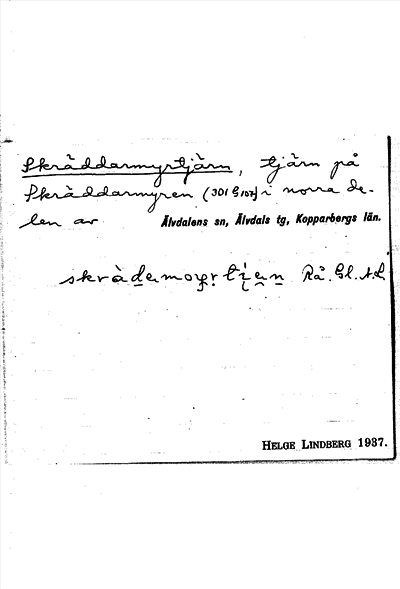 Skräddarmyrtjärn, tjärn på
Skräddarmyren (301 G 107) i norra de-
len av Älvdalens sn, Älvdals tg, Kopparbergs län.
Rå. Gl.
HELGE LINDBERG 1937.